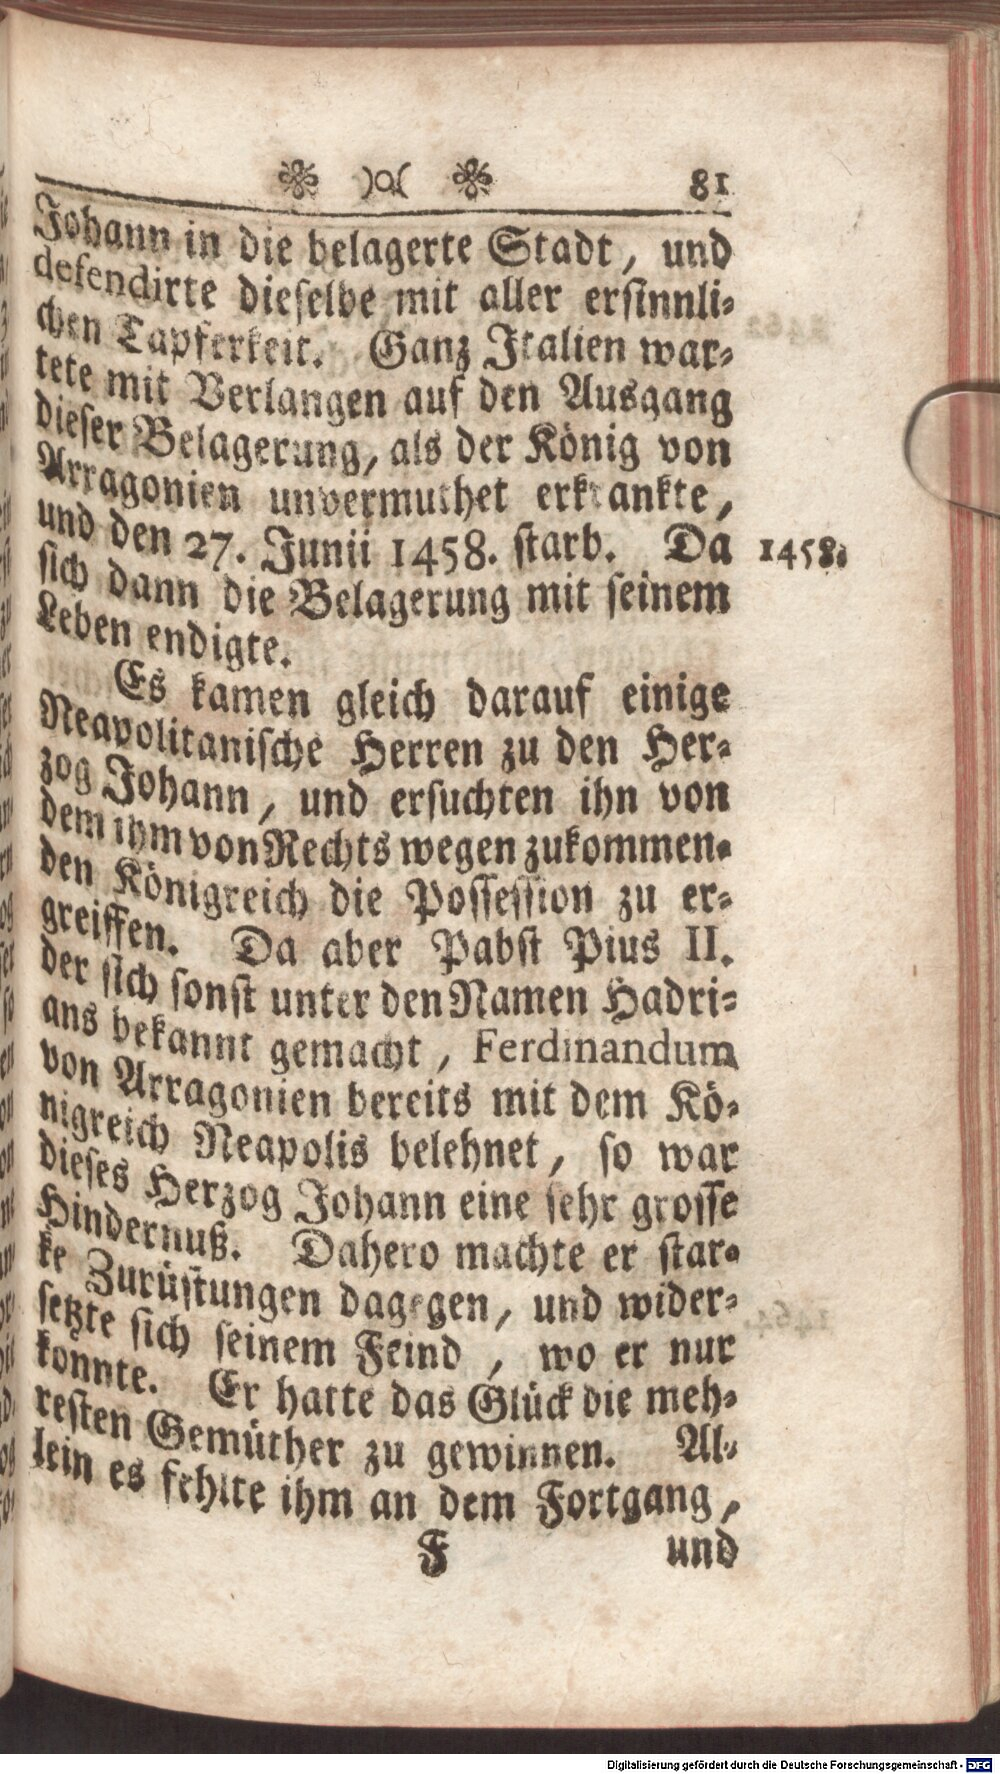 81
Johann in die belagerte Stadt, und
defendirte dieselbe mit aller ersinnli-
chen Tapferkeit. Ganz Italien war-
tete mit Verlangen auf den Ausgang
dieser Belagerung, als der König von
Arragonien unvermuthet erkrankte,
und den 27. Junii 1458. starb. Da
1458.
sich dann die Belagerung mit seinem
Leben endigte.
Es kamen gleich darauf einige
Neapolitanische Herren zu den Her-
zog Johann, und ersuchten ihn von
dem ihm von Rechts wegen zukommen-
den Königreich die Possession zu er-
greiffen. Da aber Pabst Pius II.
der sich sonst unter den Namen Hadri-
ans bekannt gemacht, Ferdinandum
von Arragonien bereits mit dem Kö-
nigreich Neapolis belehnet, so war
dieses Herzog Johann eine sehr grosse
Hindernuß. Dahero machte er star-
ke Zurüstungen dagegen, und wider-
setzte sich seinem Feind, wo er nur
konnte. Er hatte das Glück die meh-
resten Gemüther zu gewinnen. Al-
lein es fehlte ihm an dem Fortgang,
F und
Digitalisierung gefördert durch die Deutsche Forschungsgemeinschaft - DFG